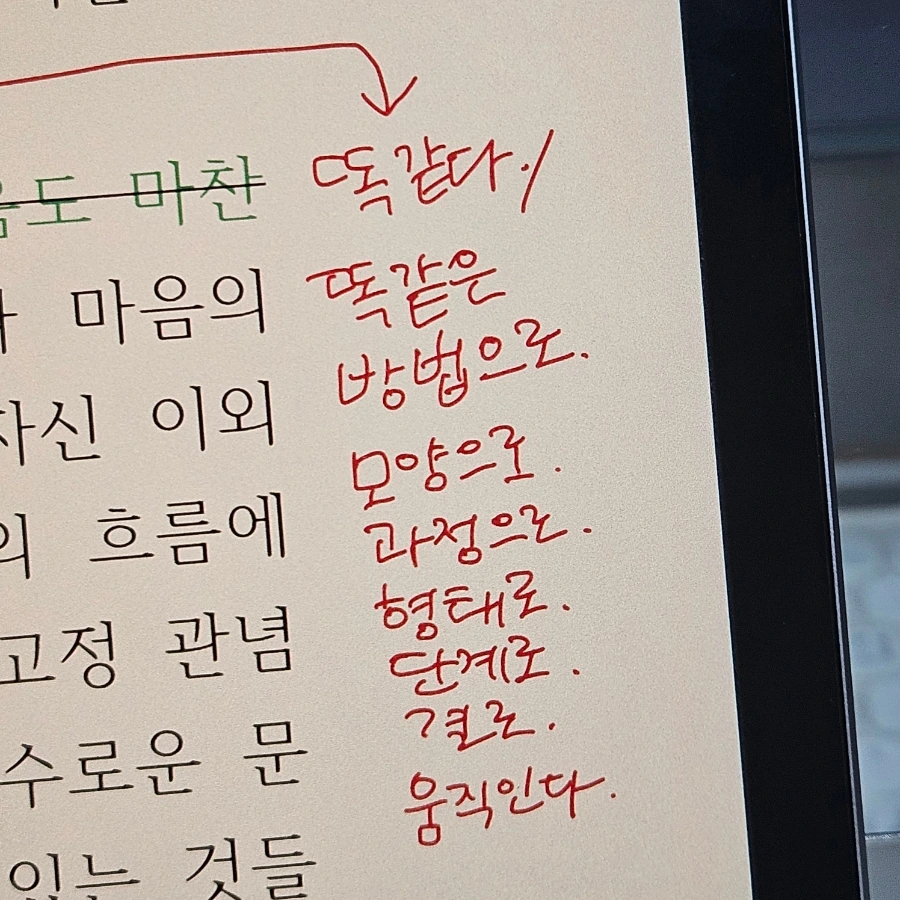 도 마찬
똑같다./
마음의
똑같은
방법으로.
자신 이외
모양으로.
의 흐름에
과정으로.
형태로.
고정 관념
단계로.
결로.
수로운 문
움직인다.
있는 것들